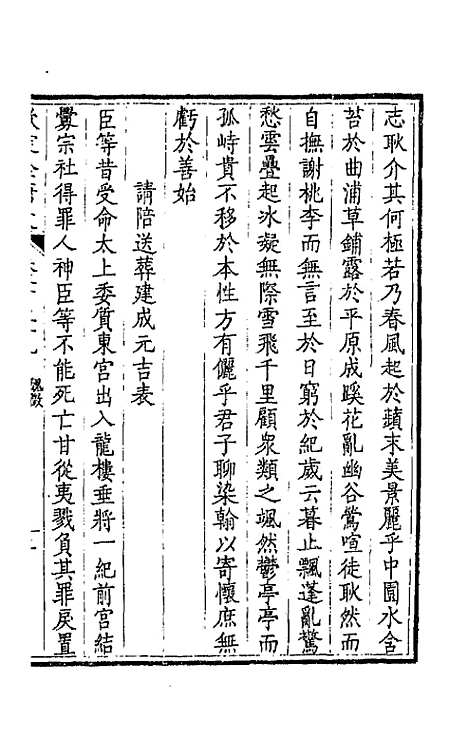 志耿介其何極若乃春風起於蘋末美景麗乎中園水含
苔於曲浦草鋪露於平原成蹊花亂幽谷鶯喧徒耿然而
自撫謝桃李而無言至於日窮於紀歲云暮止飄蓬亂驚
愁雲疊起冰凝無際雪飛千里顧衆類之颯然鬱亭亭而
孤峙貴不移於本性方有儷乎君子聊染翰以寄懷庶無
虧於善始
請陪送葬建成元吉表
臣等昔受命太上委質東宮出入龍樓垂將一紀前宮結
釁宗社得罪人神臣等不能死亡甘從夷戮負其罪戾置
魏徵